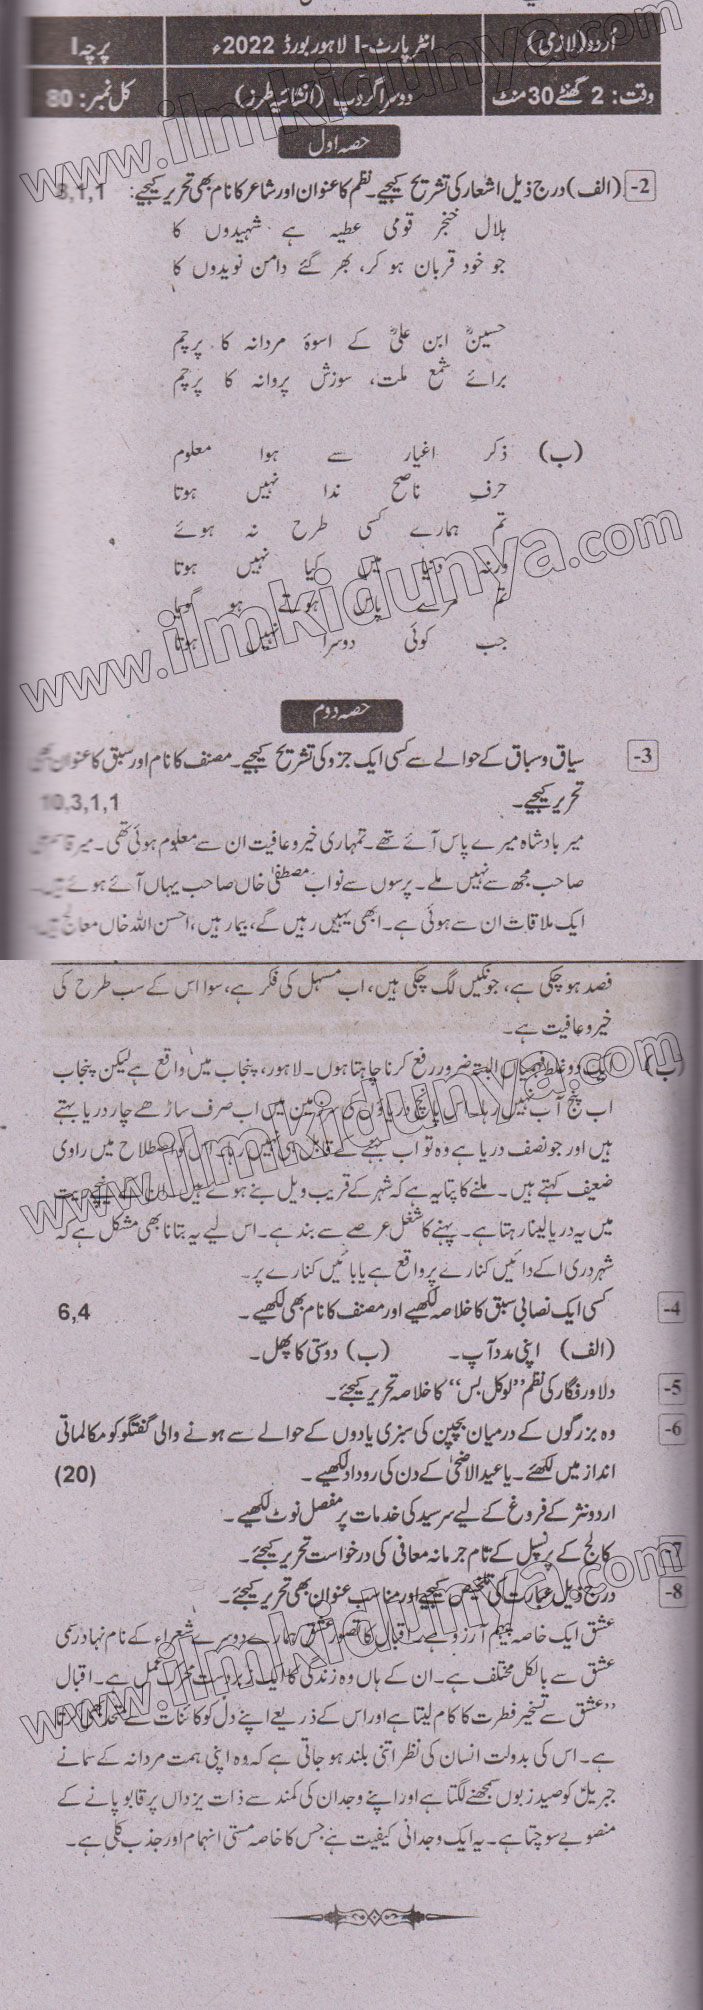 اُردو (لازمی) انٹرپارٹ-I لاہور بورڈ 2022ء پرچہ I
وقت: 2 گھنٹے 30 منٹ دوسرا گروپ (انشائیہ طرز) کل نمبر: 80
حصہ اول
2- (الف) درج ذیل اشعار کی تشریح کیجیے۔ نظم کا عنوان اور شاعر کا نام بھی تحریر کیجیے: 8,1,1
ہلال خنجر قومی عطیہ ہے شہیدوں کا
جو خود قربان ہو کر، بھر گئے دامن نویدوں کا
حسینؓ ابن علیؓ کے اسوۂ مردانہ کا پرچم
برائے شمع ملت، سوزش پروانہ کا پرچم
(ب) ذکر اغیار سے ہوا معلوم
حرفِ ناصح نہیں ہوتا
تم ہمارے کسی طرح نہ ہوئے
ورنہ دنیا میں کیا نہیں ہوتا
تم مرے پاس ہوتے ہو گویا
جب کوئی دوسرا نہیں ہوتا
حصہ دوم
3- سیاق و سباق کے حوالے سے کسی ایک جزو کی تشریح کیجیے۔ مصنف کا نام اور سبق کا عنوان بھی
تحریر کیجیے۔ 10,3,1,1
میر بادشاہ میرے پاس آئے تھے۔ تمہاری خیر و عافیت ان سے معلوم ہوئی تھی۔ میر قاسم علی
صاحب مجھ سے نہیں ملے۔ پرسوں سے نواب مصطفیٰ خاں صاحب یہاں آئے ہوئے ہیں۔
ایک ملاقات ان سے ہوئی ہے۔ ابھی یہیں رہیں گے، بیمار ہیں، احسن اللہ خاں معالج ہیں۔
فصد ہو چکی ہے، جونکیں لگ چکی ہیں، اب مسہل کی فکر ہے، سوا اس کے سب طرح کی
خیر و عافیت ہے۔
(ب) ایک دو غلط فہمیاں البتہ ضرور رفع کرنا چاہتا ہوں۔ لاہور، پنجاب میں واقع ہے لیکن پنجاب
اب پنج آب نہیں رہا۔ اس پانچ دریاؤں کی سرزمین میں اب صرف ساڑھے چار دریا بہتے
ہیں اور جو نصف دریا ہے وہ تو اب بہنے کے قابل ہی نہیں رہا۔ اس کو اصطلاح میں راوی
ضعیف کہتے ہیں۔ ملنے کا پتا یہ ہے کہ شہر کے قریب دو پل بنے ہوئے ہیں۔ ان کے نیچے ریت
میں یہ دریا لیٹا رہتا ہے۔ بہنے کا شغل عرصے سے بند ہے۔ اس لیے یہ بتانا بھی مشکل ہے کہ
شہر دریا کے دائیں کنارے پر واقع ہے یا بائیں کنارے پر۔
4- کسی ایک نصابی سبق کا خلاصہ لکھیے اور مصنف کا نام بھی لکھیے۔ 6,4
(الف) اپنی مدد آپ۔ (ب) دوستی کا پھل۔
5- دلاور فگار کی نظم "لوکل بس" کا خلاصہ تحریر کیجئے۔
6- وہ بزرگوں کے درمیان بچپن کی سنہری یادوں کے حوالے سے ہونے والی گفتگو کو مکالماتی
انداز میں لکھئے۔ یا عید الاضحیٰ کے دن کی روداد لکھیے۔ (20)
اردو نثر کے فروغ کے لیے سرسید کی خدمات پر مفصل نوٹ لکھیے۔
7- کالج کے پرنسپل کے نام جرمانہ معافی کی درخواست تحریر کیجئے۔
8- درج ذیل عبارت کی تلخیص کیجیے اور مناسب عنوان بھی تحریر کیجئے۔
عشق ایک خاصہ پیہم آرزو ہے۔ اقبال کا تصور عشق ہمارے دوسرے شعراء کے نام نہاد رسمی
عشق سے بالکل مختلف ہے۔ ان کے ہاں وہ زندگی کا ایک زبردست محرک عمل ہے۔ اقبال
"عشق سے تسخیر فطرت کا کام لیتا ہے اور اس کے ذریعے اپنے دل کو کائنات سے متحد کرتا
ہے۔ اس کی بدولت انسان کی نظر اتنی بلند ہو جاتی ہے کہ وہ اپنی ہمت مردانہ کے سامنے
جبریل کو صید زبوں سمجھنے لگتا ہے اور اپنے وجدان کی کمند سے ذات یزداں پر قابو پانے کے
منصوبے سوچتا ہے۔ یہ ایک وجدانی کیفیت ہے جس کا خاصہ مستی انہماک اور جذب کلی ہے۔
www.ilmkidunya.com
www.ilmkidunya.com
www.ilmkidunya.com
www.ilmkidunya.com